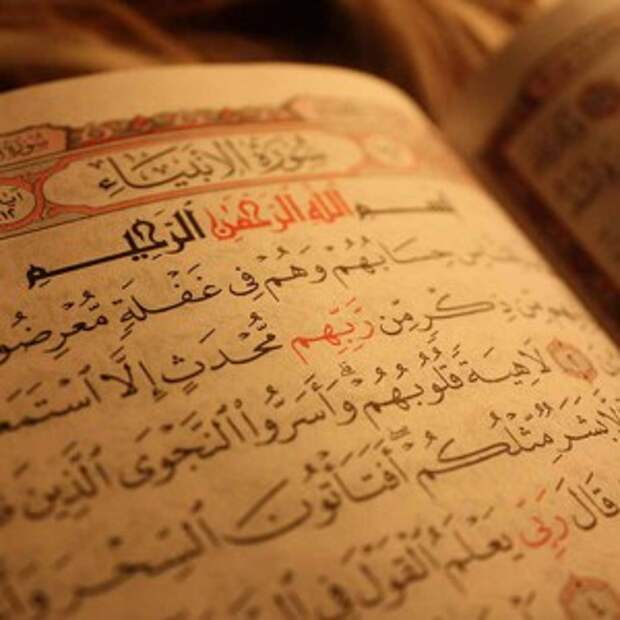 سُورَةُ الأَنبِيَاءِ
بِسْمِ ٱللَّهِ ٱلرَّحْمَٰنِ ٱلرَّحِيمِ
حِسَابُهُمْ وَهُمْ فِى غَفْلَةٍ مُّعْرِضُو
ذِكْرٍ مِّن رَّبِّهِم مُّحْدَثٍ إِلَّا ٱسْتَمَعُ
لَاهِيَةً قُلُوبُهُمْ وَأَسَرُّوا۟ ٱلنَّجْوَى ٱلَّذِينَ
بَشَرٌ مِّثْلُكُمْ أَفَتَأْتُونَ ٱلسِّحْرَ
قَالَ رَبِّى يَعْلَمُ ٱلْقَوْلَ فِى